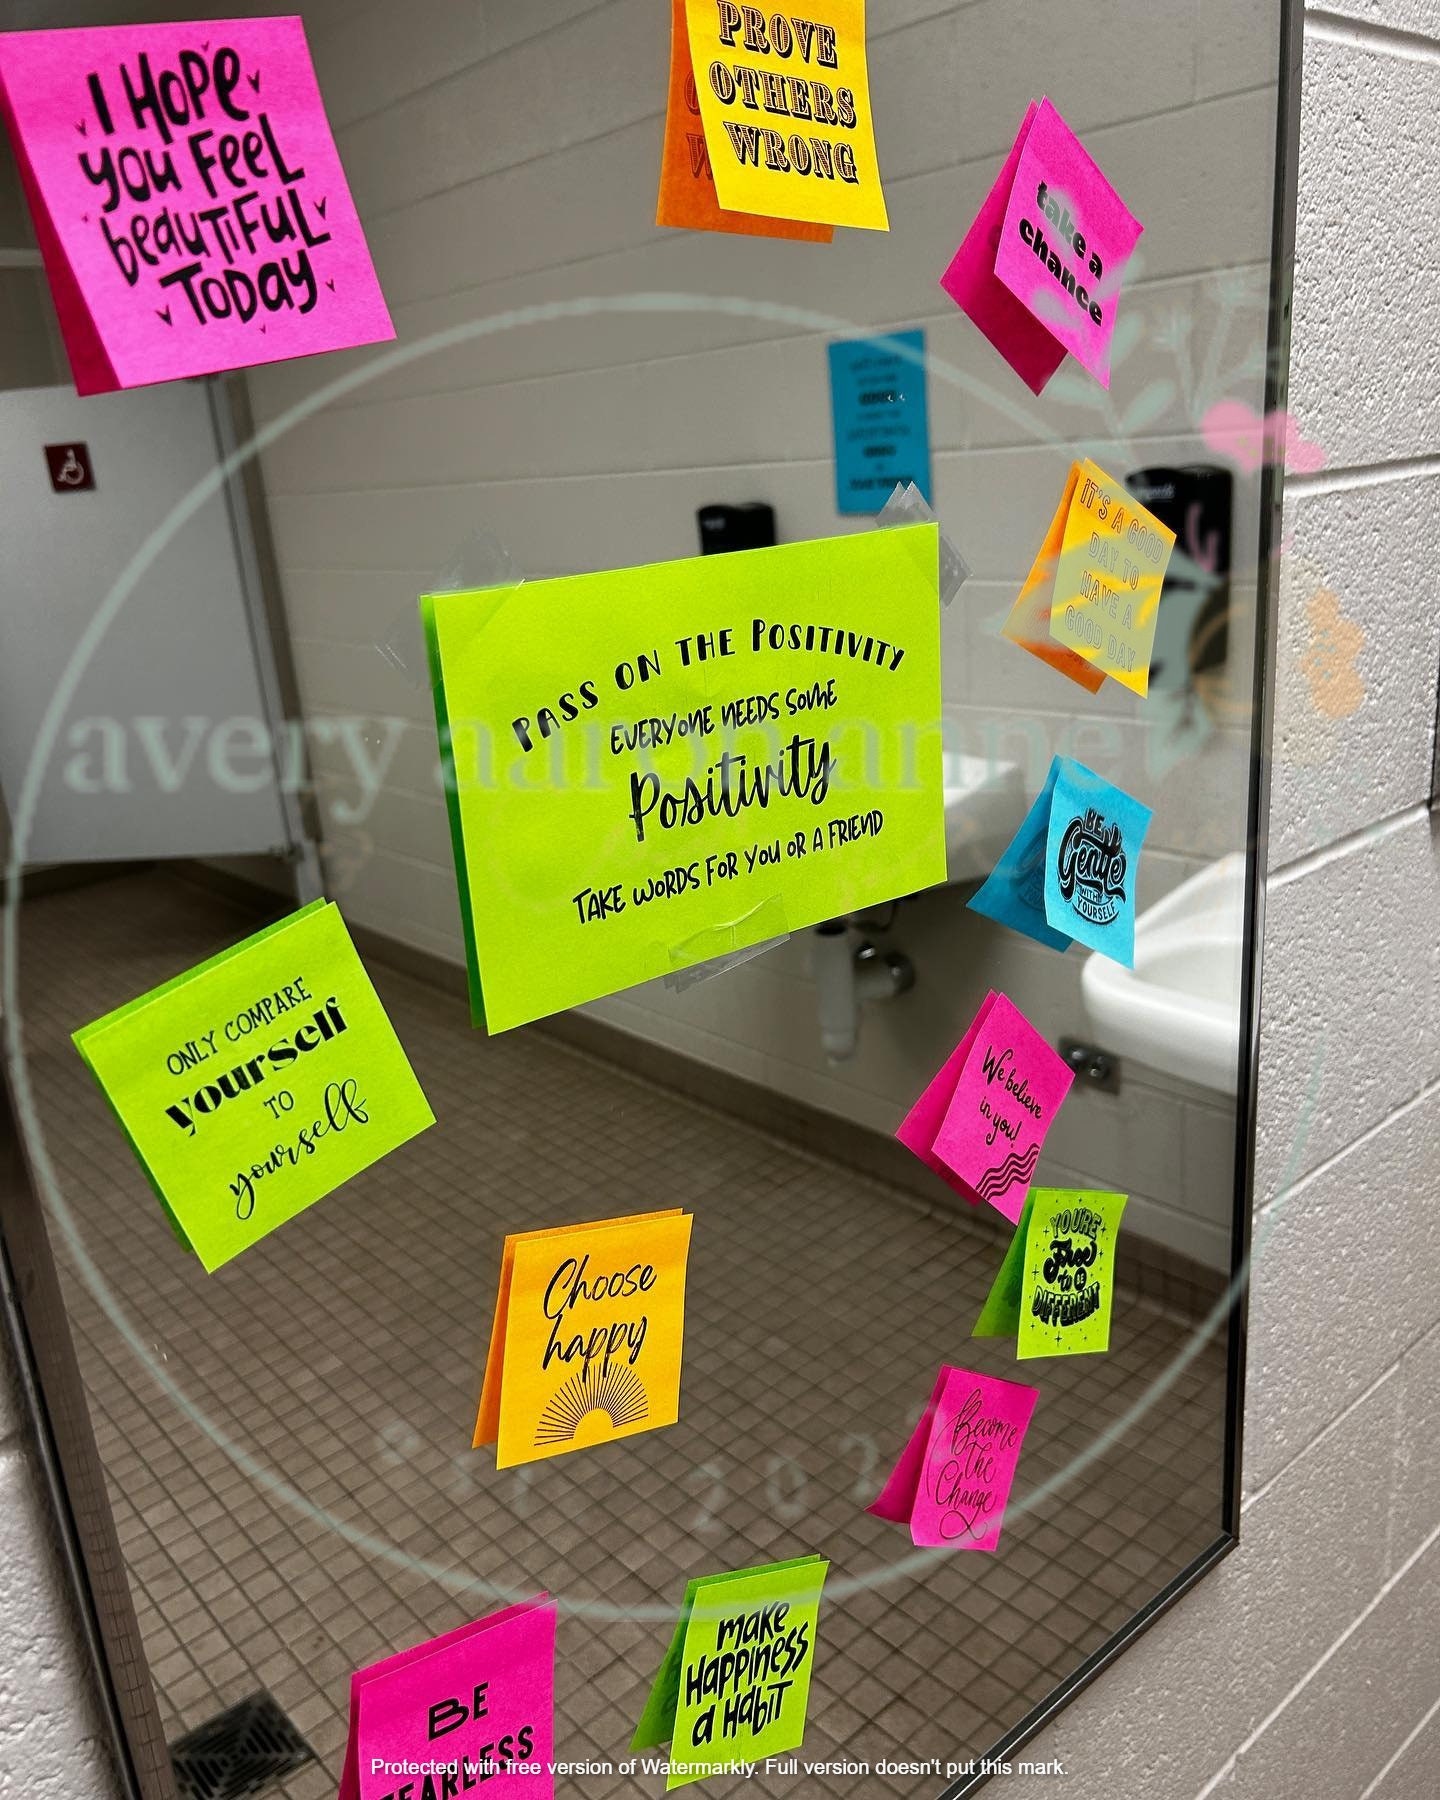 I HOPE
YOU FEEL
beauTiFUL
TODAY
PROVE
OTHERS
WRONG
take a
chance
IT'S A GOOD
DAY TO
HAVE A
GOOD DAY
PASS ON THE POSITIVITY
EVERYONE NEEDS SOME
Positivity
TAKE WORDS FOR YOU OR A FRIEND
BE
Gentle
WITH
YOURSELF
avery aaron anne
ONLY COMPARE
yourself
TO
yourself
We believe
in you!
YOU'RE
Free
to BE
DIFFERENT
Choose
happy
Become
The
Change
make
Happiness
a HabiT
BE
FEARLESS
Protected with free version of Watermarkly. Full version doesn't put this mark.